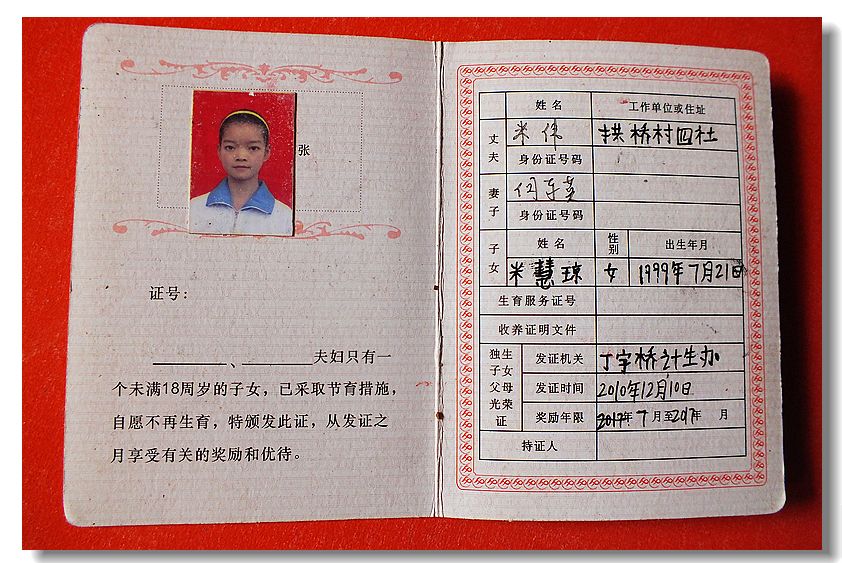 张
证号:
________、________夫妇只有一
个未满18周岁的子女,已采取节育措施,
自愿不再生育,特颁发此证,从发证之
月享受有关的奖励和优待。
姓名 工作单位或住址
丈夫 米伟 拱桥村四社
身份证号码
妻子
身份证号码
子女 姓名 性别 出生年月
米慧琼 女 1999年7月21日
生育服务证号
收养证明文件
独生子女父母光荣证 发证机关 丁字桥计生办
发证时间 2010年12月10日
奖励年限 年7月至 年 月
持证人